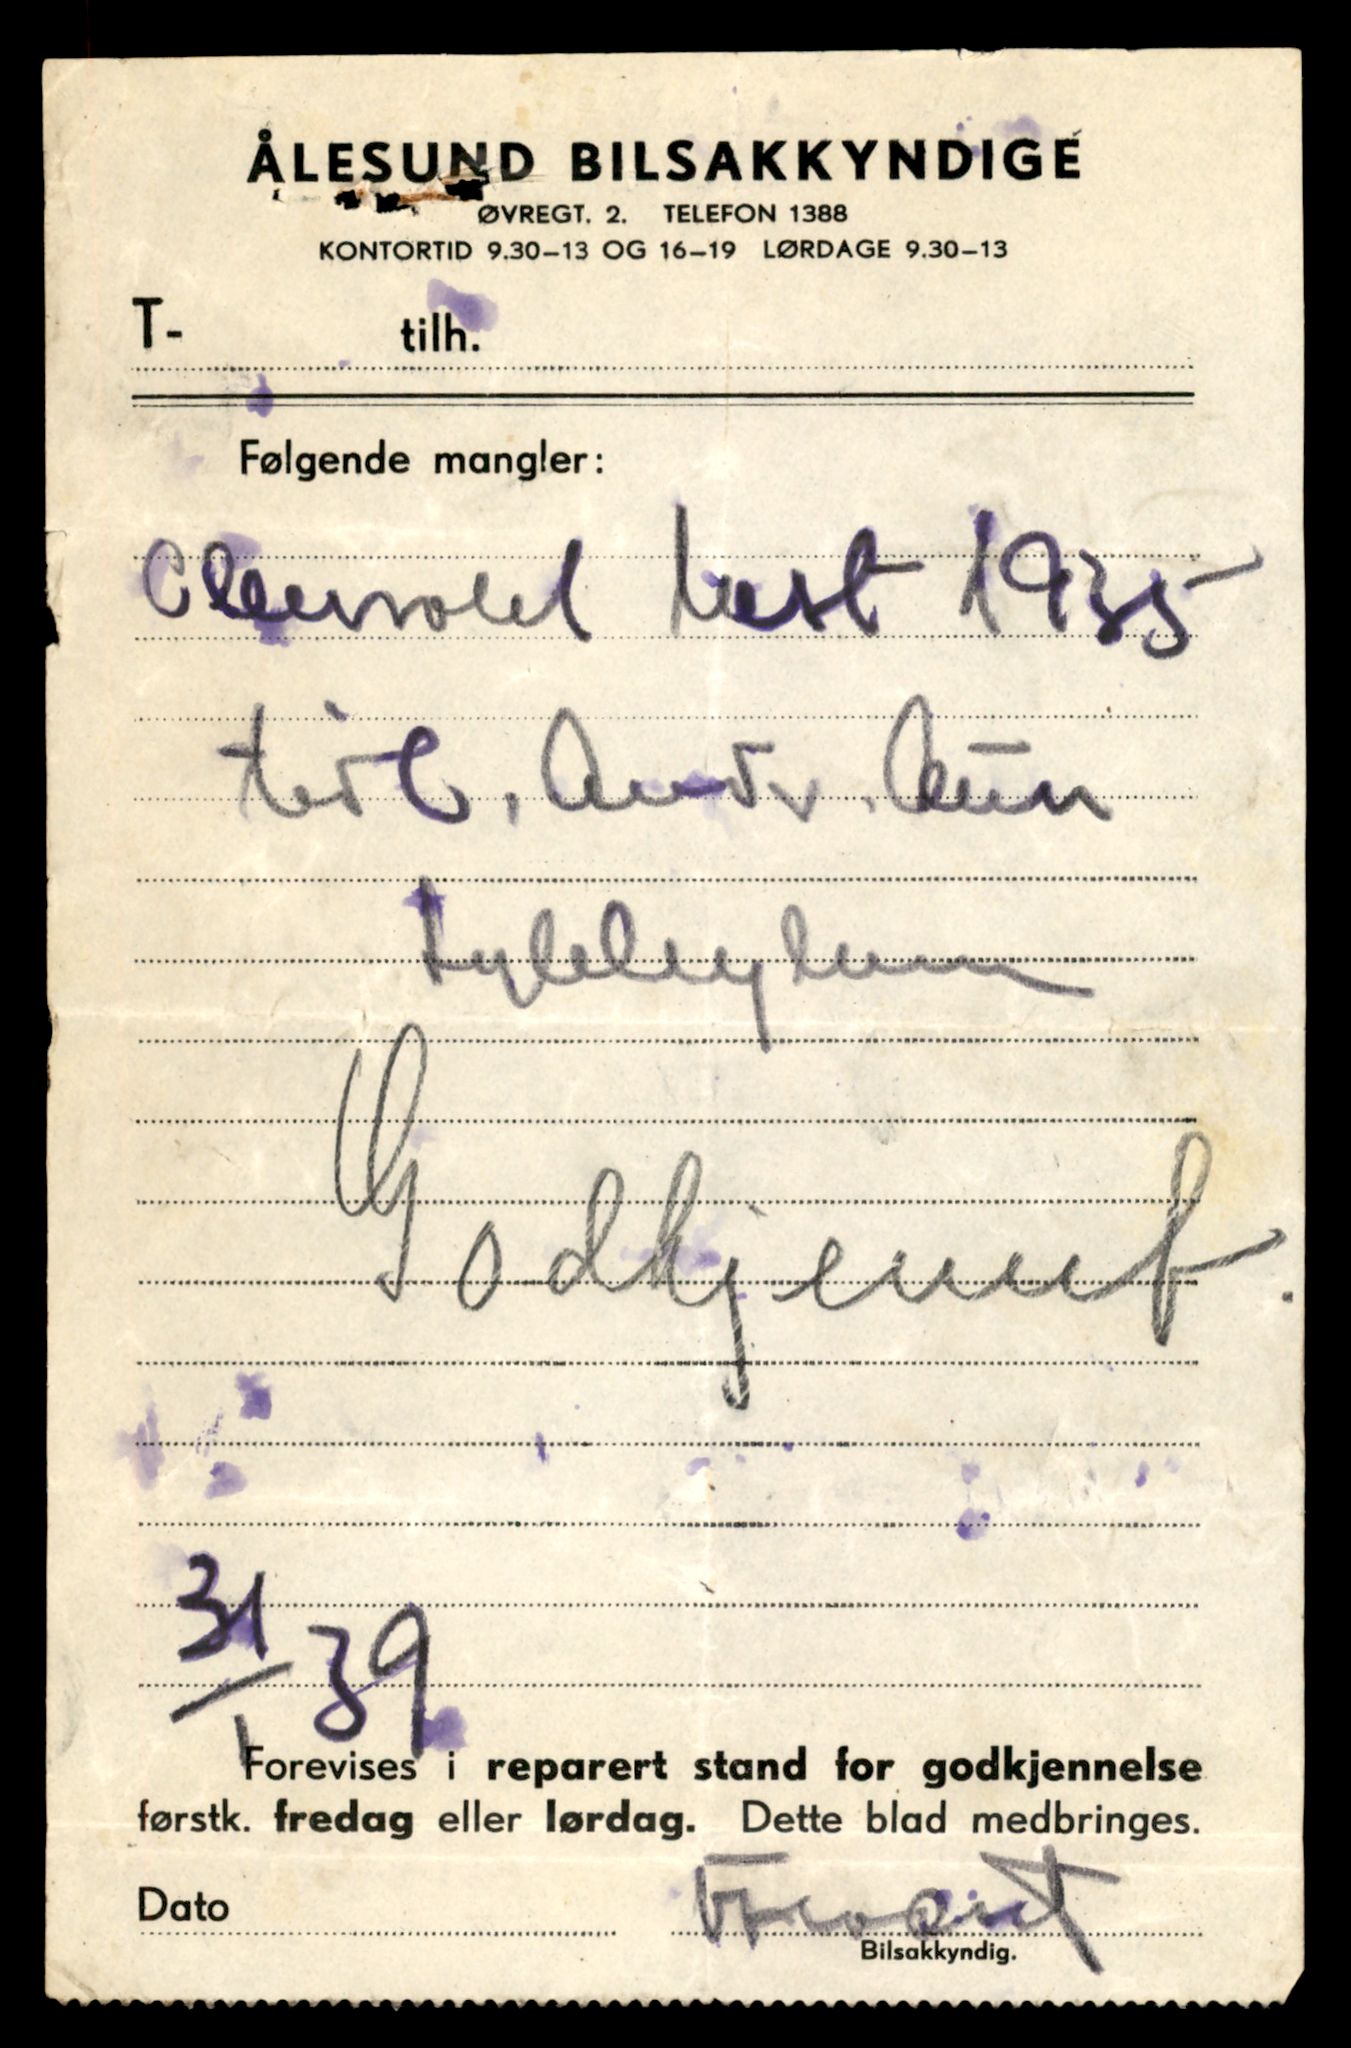 ÅLESUND BILSAKKYNDIGE
ØVREGT. 2. TELEFON 1388
KONTORTID 9.30–13 OG 16–19 LØRDAGE 9.30–13
T- tilh.
Følgende mangler:
Chevrolet last 1935
tilh. Andr. Aure
Godkjennt.
31/1 39
Forevises i reparert stand for godkjennelse
førstk. fredag eller lørdag. Dette blad medbringes.
Dato
Bilsakkyndig.